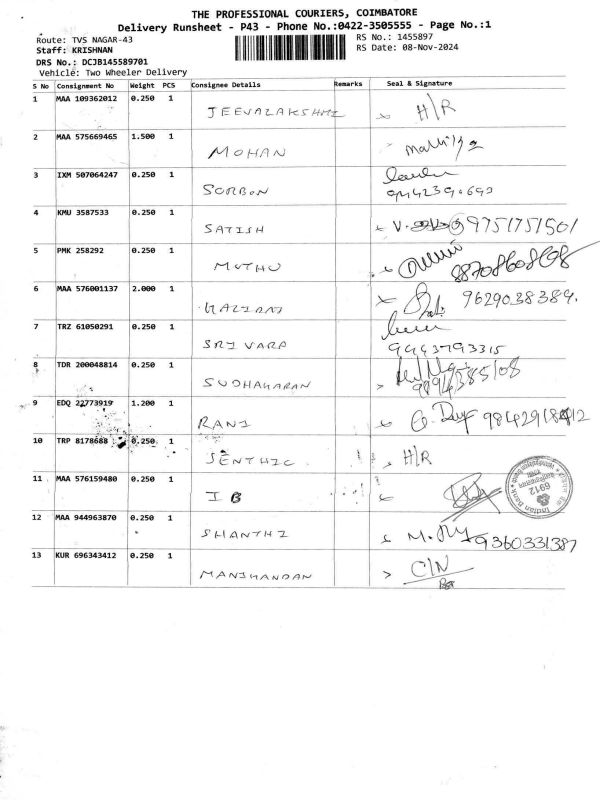 THE PROFESSIONAL COURIERS, COIMBATORE
Delivery Runsheet - P43 - Phone No.:0422-3505555 - Page No.:1
Route: TVS NAGAR-43
RS No.: 1455897
Staff: KRISHNAN
RS Date: 08-Nov-2024
DRS No.: DCJB145589701
Vehicle: Two Wheeler Delivery
S No Consignment No Weight PCS Consignee Details Remarks Seal & Signature
1 MAA 109362012 0.250 1 JEEVALAKSHMI H/R
2 MAA 575669465 1.500 1 MOHAN
3 IXM 507064247 0.250 1 SORBON
4 KMU 3587533 0.250 1 SATISH 9751751501
5 PMK 258292 0.250 1 MUTHU
6 MAA 576001137 2.000 1 9629038384.
7 TRZ 61050291 0.250 1 SRI VARP 9443793315
8 TDR 200048814 0.250 1 SUDHAKARAN
9 EDQ 22773919 1.200 1 RANI
10 TRP 8178688 0.250 1 SENTHIL H/R
11 MAA 576159480 0.250 1 IB
Indian Bank
6912
12 MAA 944963870 0.250 1 SHANTHI 9360331387
13 KUR 696343412 0.250 1 MANIKANDAN C/N